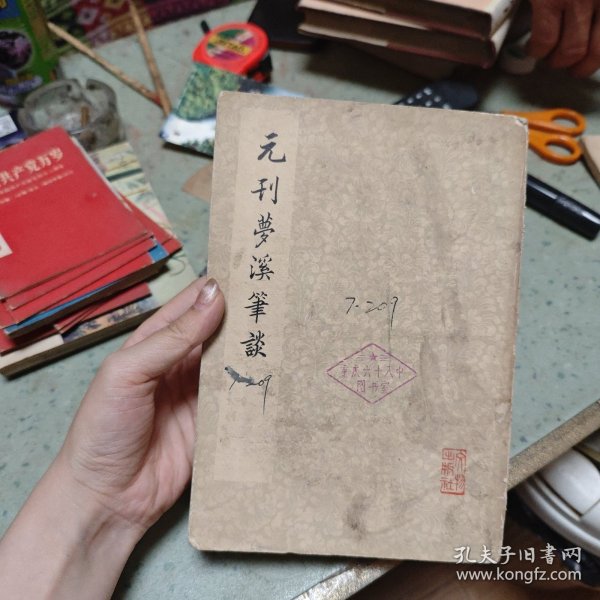 元刊夢溪筆談
7-209
7-209
文物
出版社
共产党万岁
孔夫子旧书网
www.kongfz.com